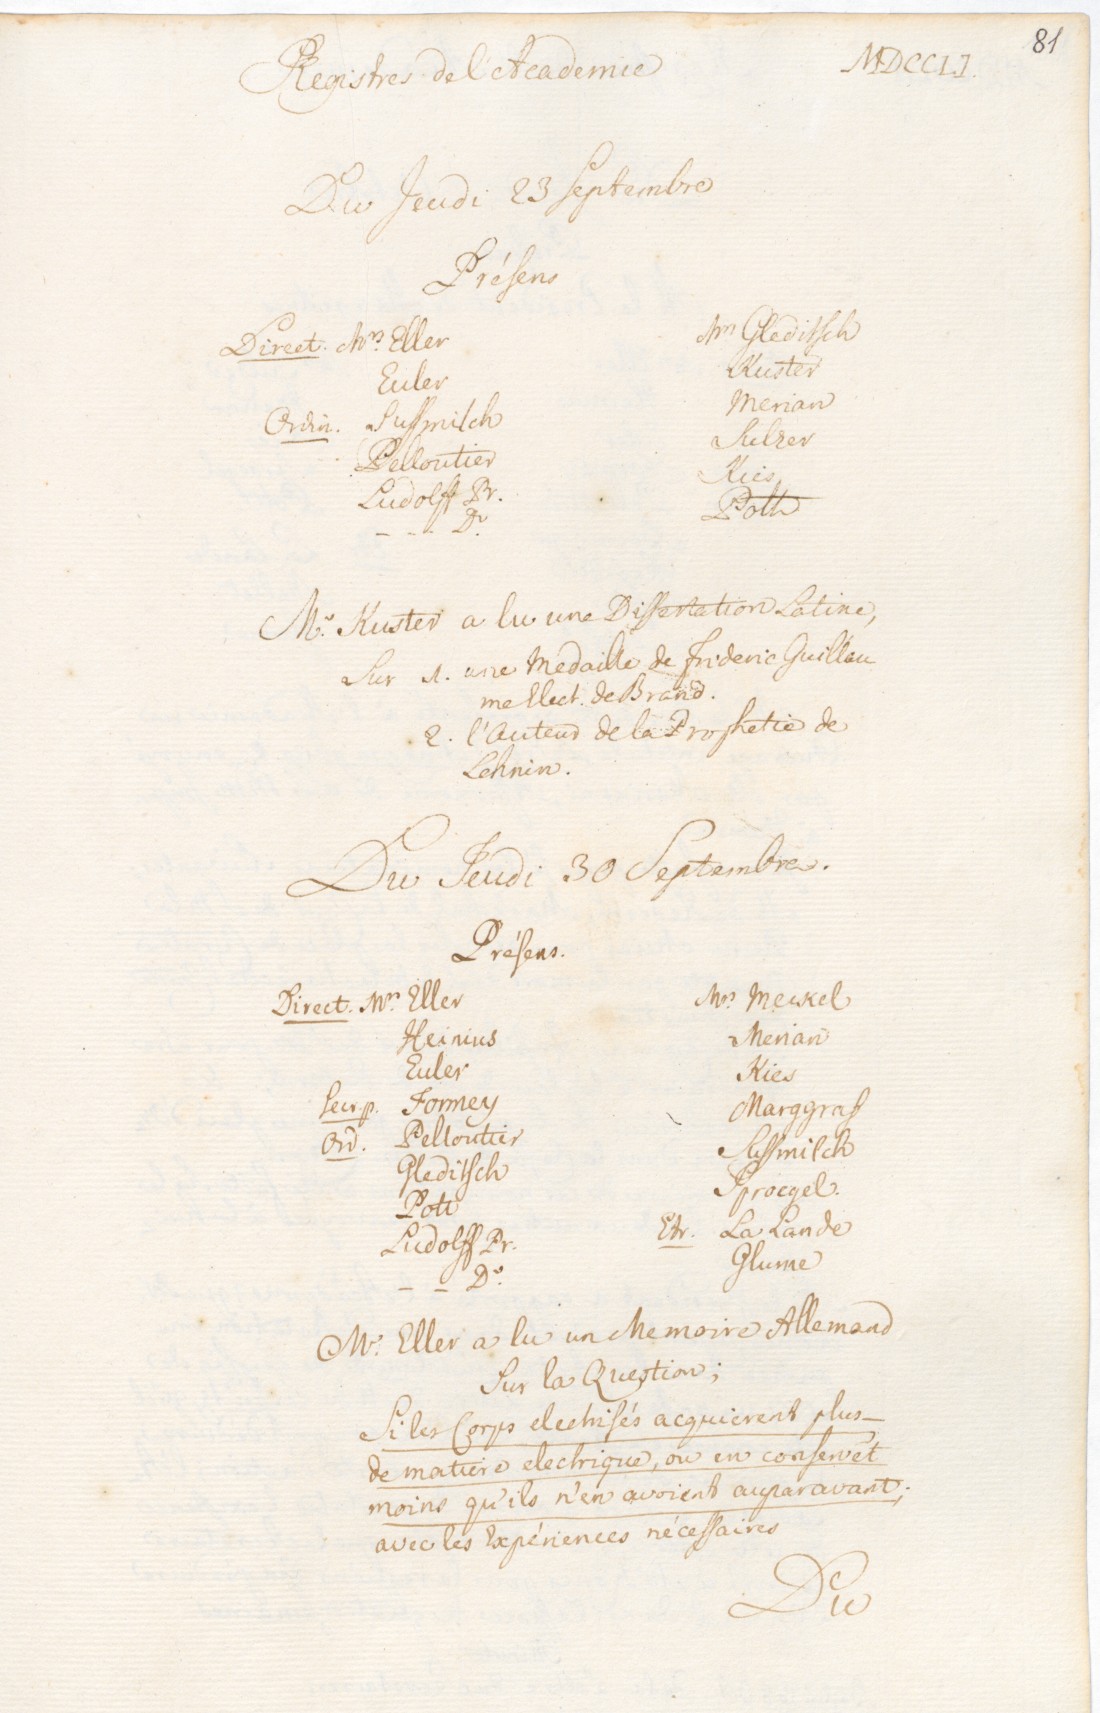 81
Registres de l'Academie MDCCLI.
Du Jeudi 23 Septembre
Présens
Direct. Mrs. Eller
Euler
Ordin. Sussmilch
Pelloutier
Ludolff Pr.
- - - Dr.
Mrs Gleditsch
Kuster
Merian
Sulzer
Kies
Pott
Mr. Kuster a lu une Dissertation Latine,
Sur 1. une Medaille de Frideric Guillau
me Elect. de Brand.
2. l'Auteur de la Prophetie de
Lehnin.
Du Jeudi 30 Septembre.
Présens.
Direct. Mrs. Eller
Heinius
Euler
Secr. p. Formey
Ord. Pelloutier
Gleditsch
Pott
Ludolff Pr.
- - Dr.
Mrs. Meckel
Merian
Kies
Marggraf
Sussmilch
Sproegel.
Etr. La Lande
Glume
Mr. Eller a lu un Memoire Allemand
Sur la Question;
Si les Corps electrisés acquierent plus
de matiere electrique, ou en conservēt
moins qu'ils n'en avoient auparavant;
avec les Expériences nécessaires
Du